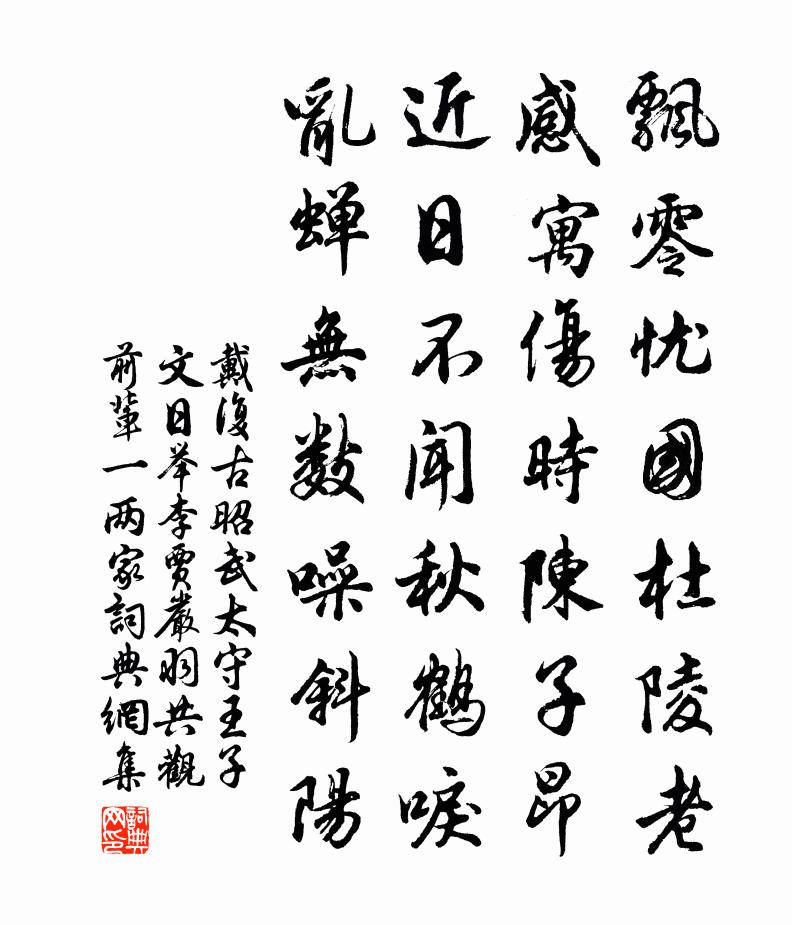 飄零忧國杜陵老
感寓傷時陳子昂
近日不聞秋鶴唳
亂蟬無数噪斜陽
戴復古昭武太守王子
文日举李賈嚴羽共觀
前輩一两家詞典網集
詞典网印